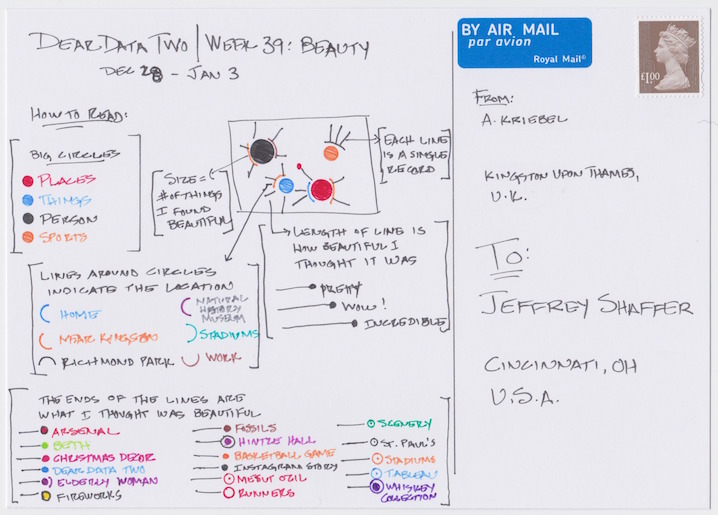 DEAR DATA TWO | WEEK 39: BEAUTY
DEC 28 - JAN 3
HOW TO READ:
BIG CIRCLES
PLACES
THINGS
PERSON
SPORTS
SIZE =
# OF THINGS
I FOUND
BEAUTIFUL
EACH LINE
IS A SINGLE
RECORD
LENGTH OF LINE IS
HOW BEAUTIFUL I
THOUGHT IT WAS
PRETTY
WOW!
INCREDIBLE
LINES AROUND CIRCLES
INDICATE THE LOCATION
HOME
NEAR KINGSTON
RICHMOND PARK
NATURAL
HISTORY
MUSEUM
STADIUMS
WORK
THE ENDS OF THE LINES ARE
WHAT I THOUGHT WAS BEAUTIFUL
ARSENAL
BETH
CHRISTMAS DECOR
DEAR DATA TWO
ELDERLY WOMAN
FIREWORKS
FOSSILS
HINTZE HALL
BASKETBALL GAME
INSTAGRAM STORY
MESUT OZIL
RUNNERS
SCENERY
ST. PAUL'S
STADIUMS
TABLEAU
WHISKEY
COLLECTION
BY AIR MAIL
par avion
Royal Mail©
£1.00
FROM:
A. KRIEBEL
KINGSTON UPON THAMES,
U.K.
TO:
JEFFREY SHAFFER
CINCINNATI, OH
U.S.A.